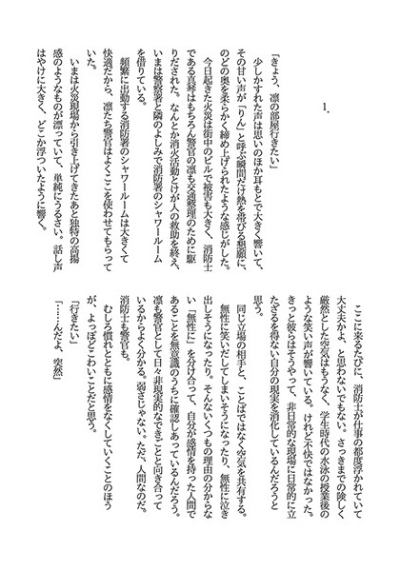 1.
「きょう、凛の部屋行きたい」
　少しかすれた声は思いのほか耳もとで大きく響いて、
その甘い声が「りん」と呼ぶ瞬間だけ熱を帯びる懇願に、
のどの奥を柔らかく締め上げられたような感じがした。
　今日起きた火災は街中のビルで被害も大きく、消防士
である真琴はもちろん警官の凛も交通整理のために駆
りだされた。なんとか消火活動とけが人の救助を終え、
いまは警察署と隣のよしみで消防署のシャワールーム
を借りている。
　頻繁に出動する消防署のシャワールームは大きくて
快適だから、凛たち警官はよくここを使わせてもらって
いた。
　いまは火災現場から引き上げてきたあと独特の高揚
感のようなものが漂っていて、単純にうるさい。話し声
はやけに大きく、どこか浮ついたように響く。
　ここに来るたびに、消防士が仕事の都度浮かれていて
大丈夫かよ、と思わないでもない。さっきまでの険しく
厳然とした空気はもうなく、学生時代の水泳の授業後の
ような笑い声が響いている。けれど不快ではなかった。
きっと彼らはそうやって、非日常的な現場に日常的に立
たざるを得ない自分の現実を消化しているんだろうと
思う。
　同じ立場の相手と、ことばではなく空気を共有する。
　無性に笑いだしてしまいそうになったり、無性に泣き
出しそうになったり。そんないくつもの理由の分からな
い「無性に」を分け合って、自分が感情を持った人間で
あることを無意識のうちに確認しあっているんだろう。
凛も警官として日々非現実的なできごとと向き合って
いるからよく分かる。弱さじゃない。ただ、人間なのだ。
消防士も警官も。
　むしろ慣れとともに感情をなくしていくことのほう
が、よっぽどこわいことだと思う。
「行きたい」
「……んだよ、突然」